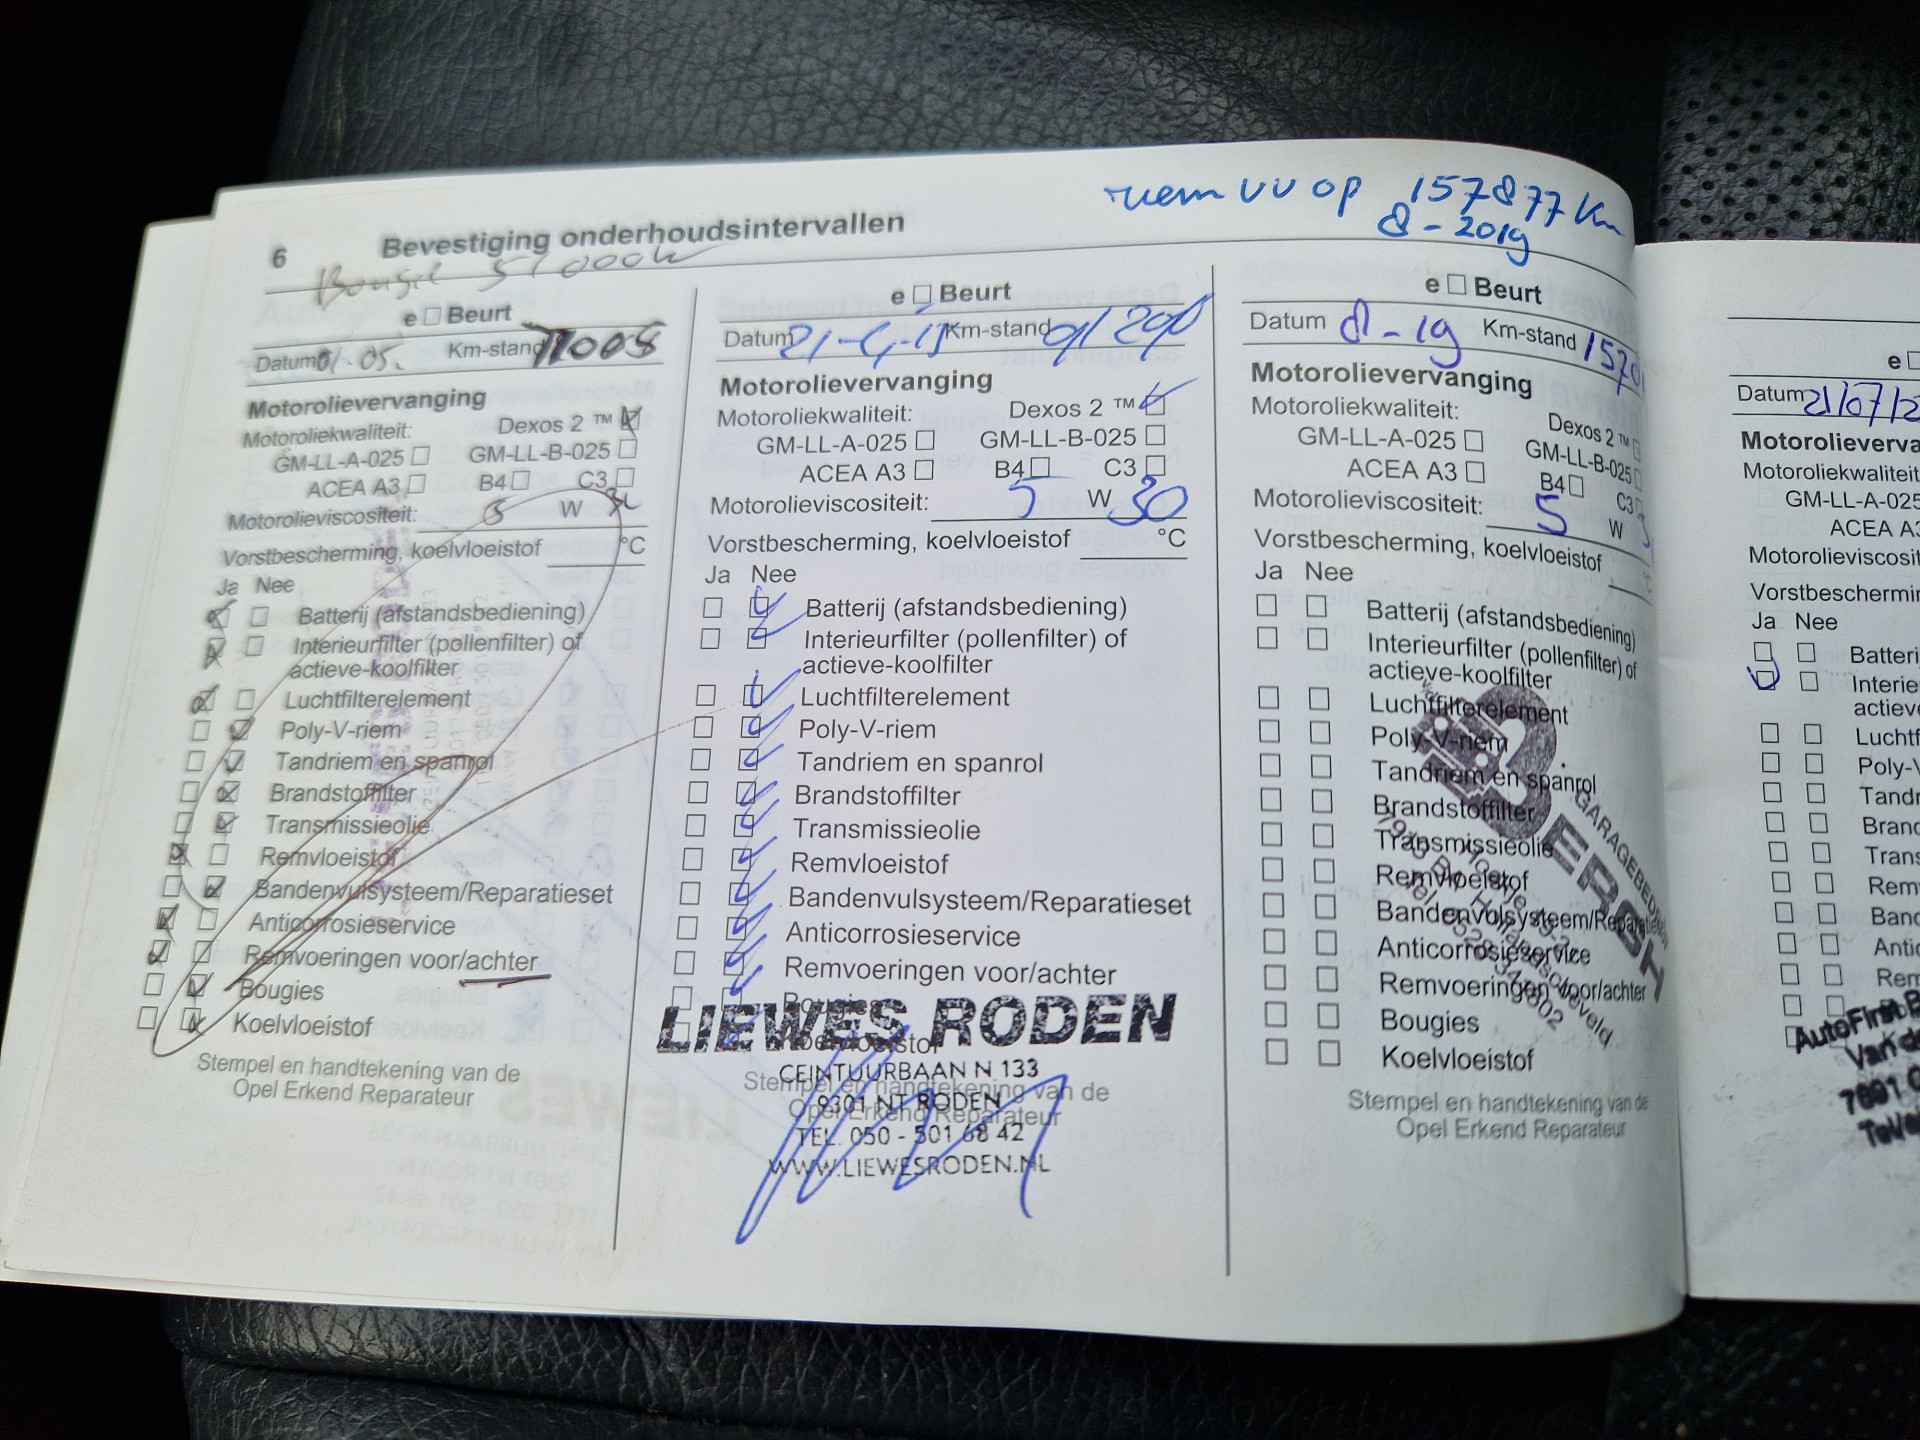 riem vv op 157877 Km
8-2019
6 Bevestiging onderhoudsintervallen
Bougie 51000k
e Beurt
Datum 01-05. Km-stand 71008
Motorolievervanging
Motoroliekwaliteit: Dexos 2 ™
GM-LL-A-025 GM-LL-B-025
ACEA A3 B4 C3
Motorolieviscositeit: 5 W 30
Vorstbescherming, koelvloeistof °C
Ja Nee
Batterij (afstandsbediening)
Interieurfilter (pollenfilter) of
actieve-koolfilter
Luchtfilterelement
Poly-V-riem
Tandriem en spanrol
Brandstoffilter
Transmissieolie
Remvloeistof
Bandenvulsysteem/Reparatieset
Anticorrosieservice
Remvoeringen voor/achter
Bougies
Koelvloeistof
Stempel en handtekening van de
Opel Erkend Reparateur
e Beurt
Datum Km-stand
Motorolievervanging
Motoroliekwaliteit: Dexos 2 ™
GM-LL-A-025 GM-LL-B-025
ACEA A3 B4 C3
Motorolieviscositeit: 5 W 30
Vorstbescherming, koelvloeistof °C
Ja Nee
Batterij (afstandsbediening)
Interieurfilter (pollenfilter) of
actieve-koolfilter
Luchtfilterelement
Poly-V-riem
Tandriem en spanrol
Brandstoffilter
Transmissieolie
Remvloeistof
Bandenvulsysteem/Reparatieset
Anticorrosieservice
Remvoeringen voor/achter
Bougies
Koelvloeistof
LIEWES RODEN
CEINTUURBAAN N 133
9301 NT RODEN
TEL. 050 - 501 68 42
WWW.LIEWESRODEN.NL
Stempel en handtekening van de
Opel Erkend Reparateur
e Beurt
Datum 8-19 Km-stand 1570
Motorolievervanging
Motoroliekwaliteit: Dexos 2 ™
GM-LL-A-025 GM-LL-B-025
ACEA A3 B4 C3
Motorolieviscositeit: 5 W 3
Vorstbescherming, koelvloeistof
Ja Nee
Batterij (afstandsbediening)
Interieurfilter (pollenfilter) of
actieve-koolfilter
Luchtfilterelement
Poly-V-riem
Tandriem en spanrol
Brandstoffilter
Transmissieolie
Remvloeistof
Bandenvulsysteem/Reparatieset
Anticorrosieservice
Remvoeringen voor/achter
Bougies
Koelvloeistof
GARAGEBEDRIJF
BERGH
Hollandscheveld
Stempel en handtekening van de
Opel Erkend Reparateur
e
Datum 21/07/2
Motorolieverva
Motoroliekwaliteit
GM-LL-A-025
ACEA A3
Motorolieviscosit
Vorstbeschermin
Ja Nee
Batteri
Interie
actieve
Luchtf
Poly-V
Tandr
Brand
Trans
Remv
Band
Antic
Rem
AutoFirst B
Van d
7891